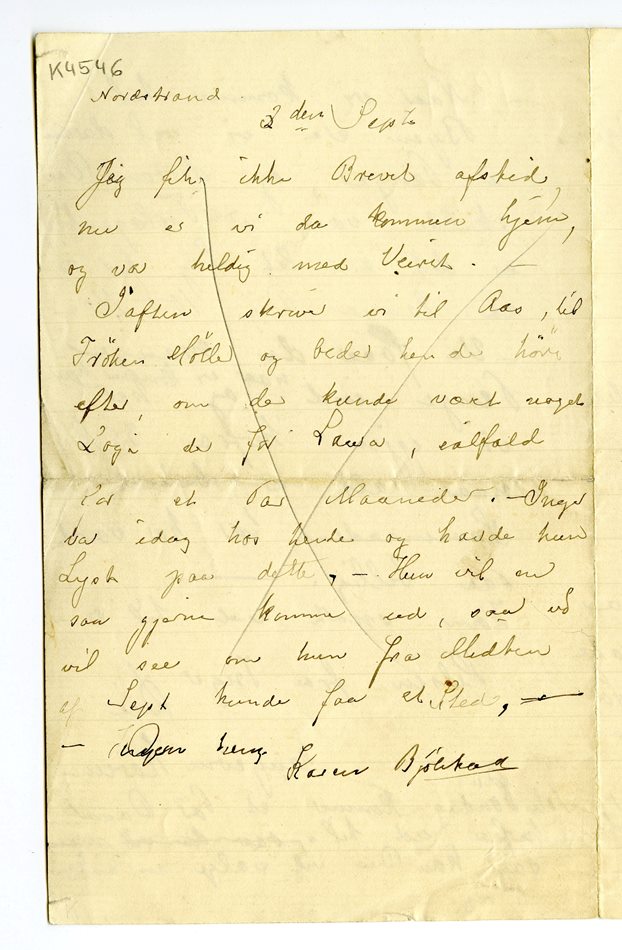 K4546
Nordstrand
2den Sept
Jeg fik ikke Brevet afsted,
nu er vi da kommen hjem,
og var heldig med Veiret. –
I aften skriver vi til Aas, til
Fröken Mölle og beder hende höre
efter, om der kunde vært noget
Logi der for Laura, ialfald
for et Par Maaneder. – Inga
va idag hos hende og havde hun
Lyst paa dette, – Hun vil en
saa gjerne komme ud, saa vi
vil see om hun fra Midten
af Sept kunde faa et Sted, –
–
Karen Bjölstad